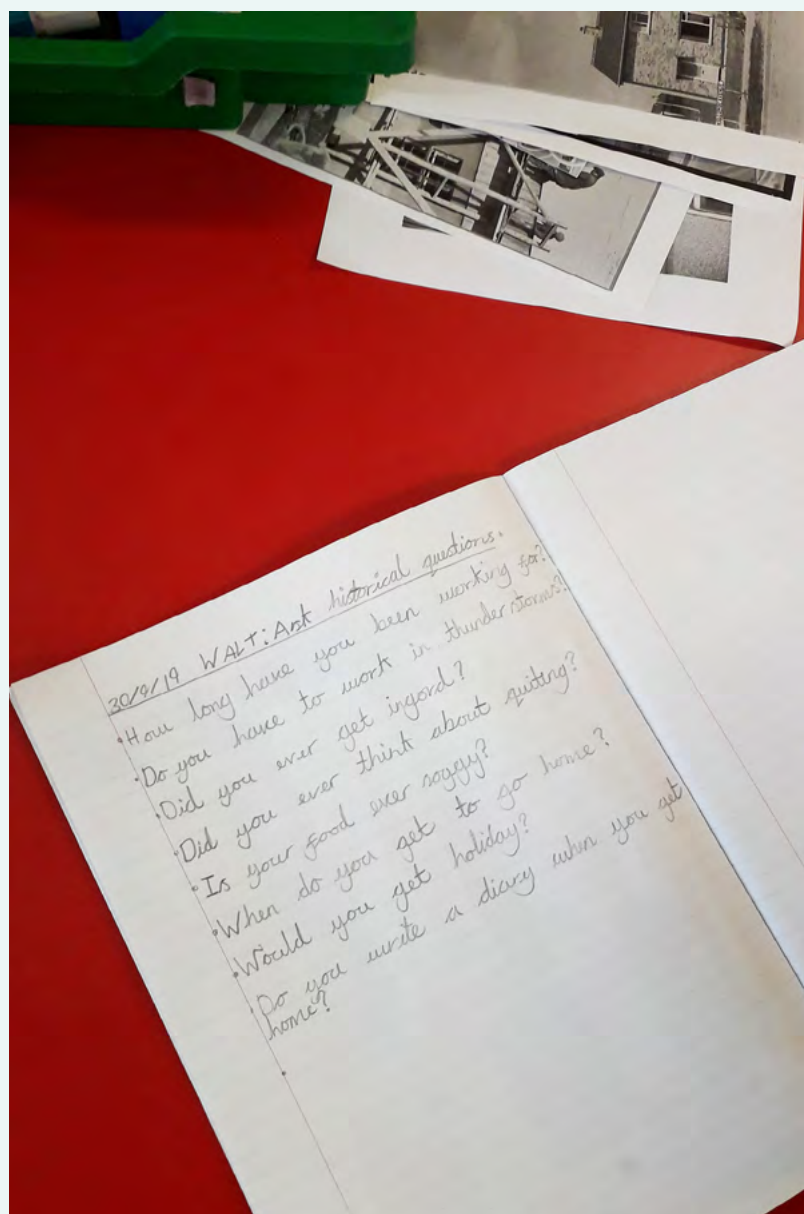 30/9/19 WALT: Ask historical questions.
• How long have you been working for?
• Do you have to work in thunderstorms?
• Did you ever get ingord?
• Did you ever think about quiting?
• Is your food ever soggy?
• When do you get to go home?
• Would you get holiday?
• Do you write a diary when you get
home?
•